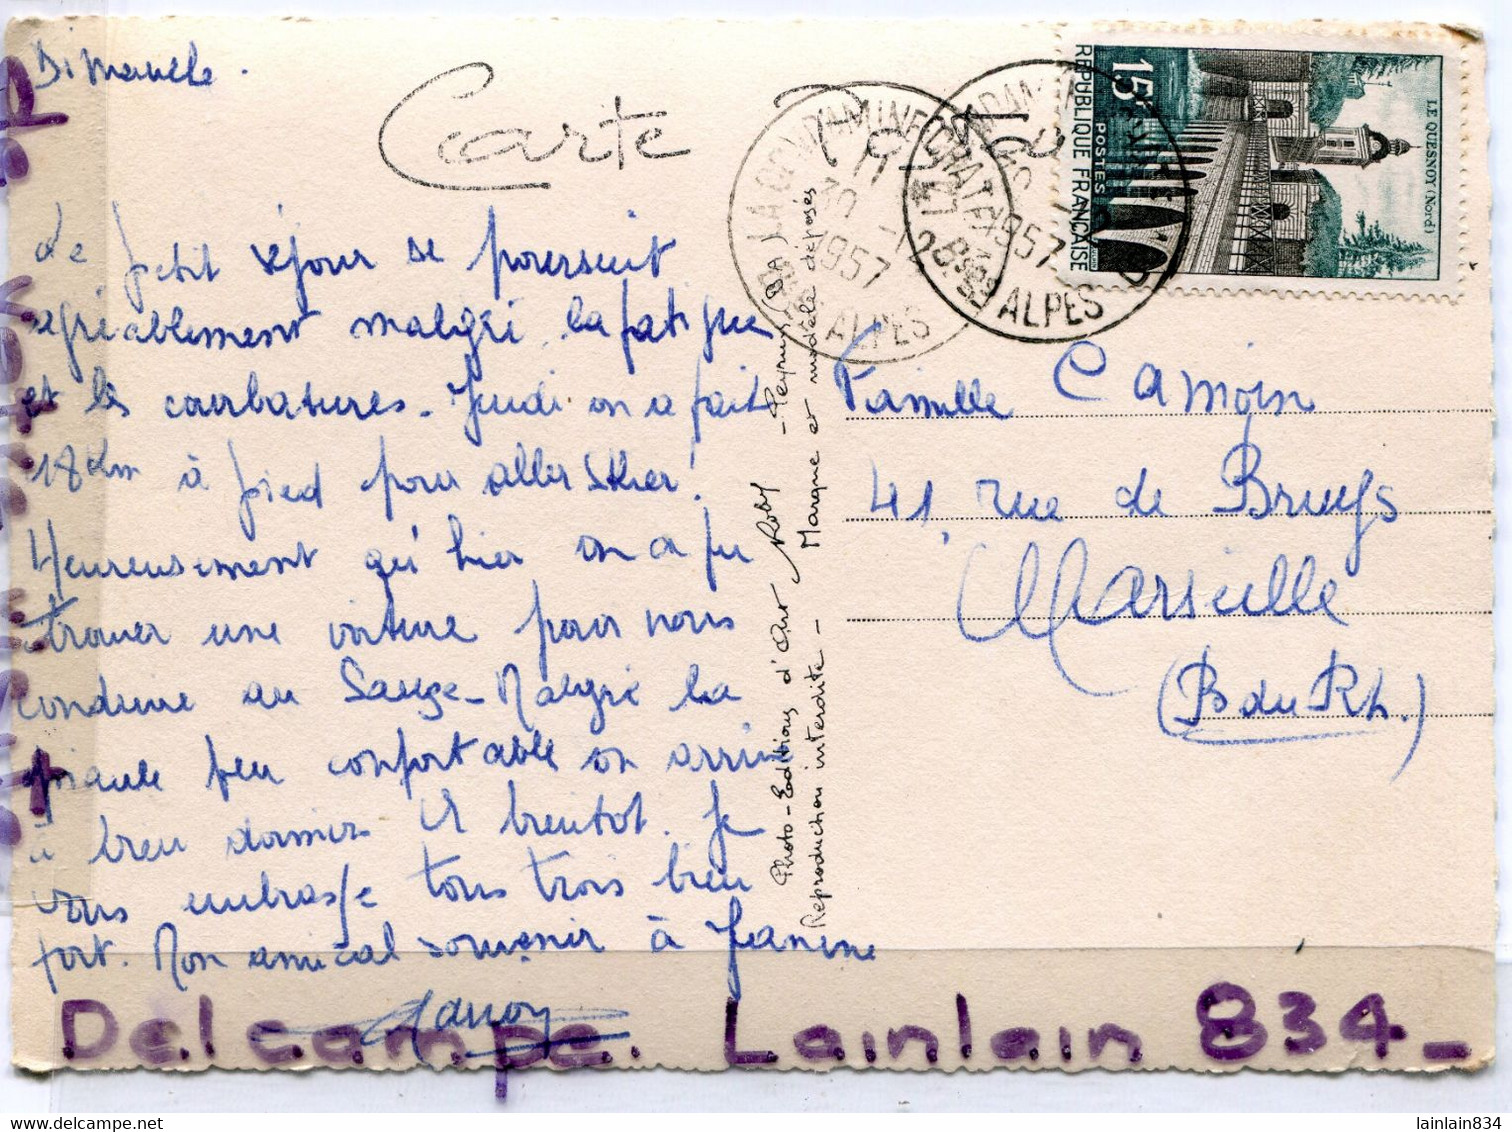 Dimanche.
Carte Postale
Le petit séjour se poursuit
agréablement malgré la fatigue
et les courbatures. Jeudi on a fait
18 Km à pied pour aller skier!
Heureusement qu'hier on a pu
trouver une voiture pour nous
conduire au Sauze. Malgré la
peu confortable on arrive
à bien dormir. A bientôt. Je
vous embrasse tous trois bien
fort. Mon amical souvenir à Janine
Photo-Editions d'Art Roby - Peyruis BA
Reproduction interdite - Marque et modèle déposés
LA CONDAMINE CHATELARD
11 H
30 -12
1957
Bses ALPES
LA CONDAMINE CHATELARD
1957
Bses ALPES
15F
REPUBLIQUE FRANÇAISE
POSTES
LE QUESNOY (Nord)
Famille Camoin
41, rue de Bruys
Marseille
(B du Rh.)
Delcampe. Lainlain 834_
delcampe.net
lainlain834